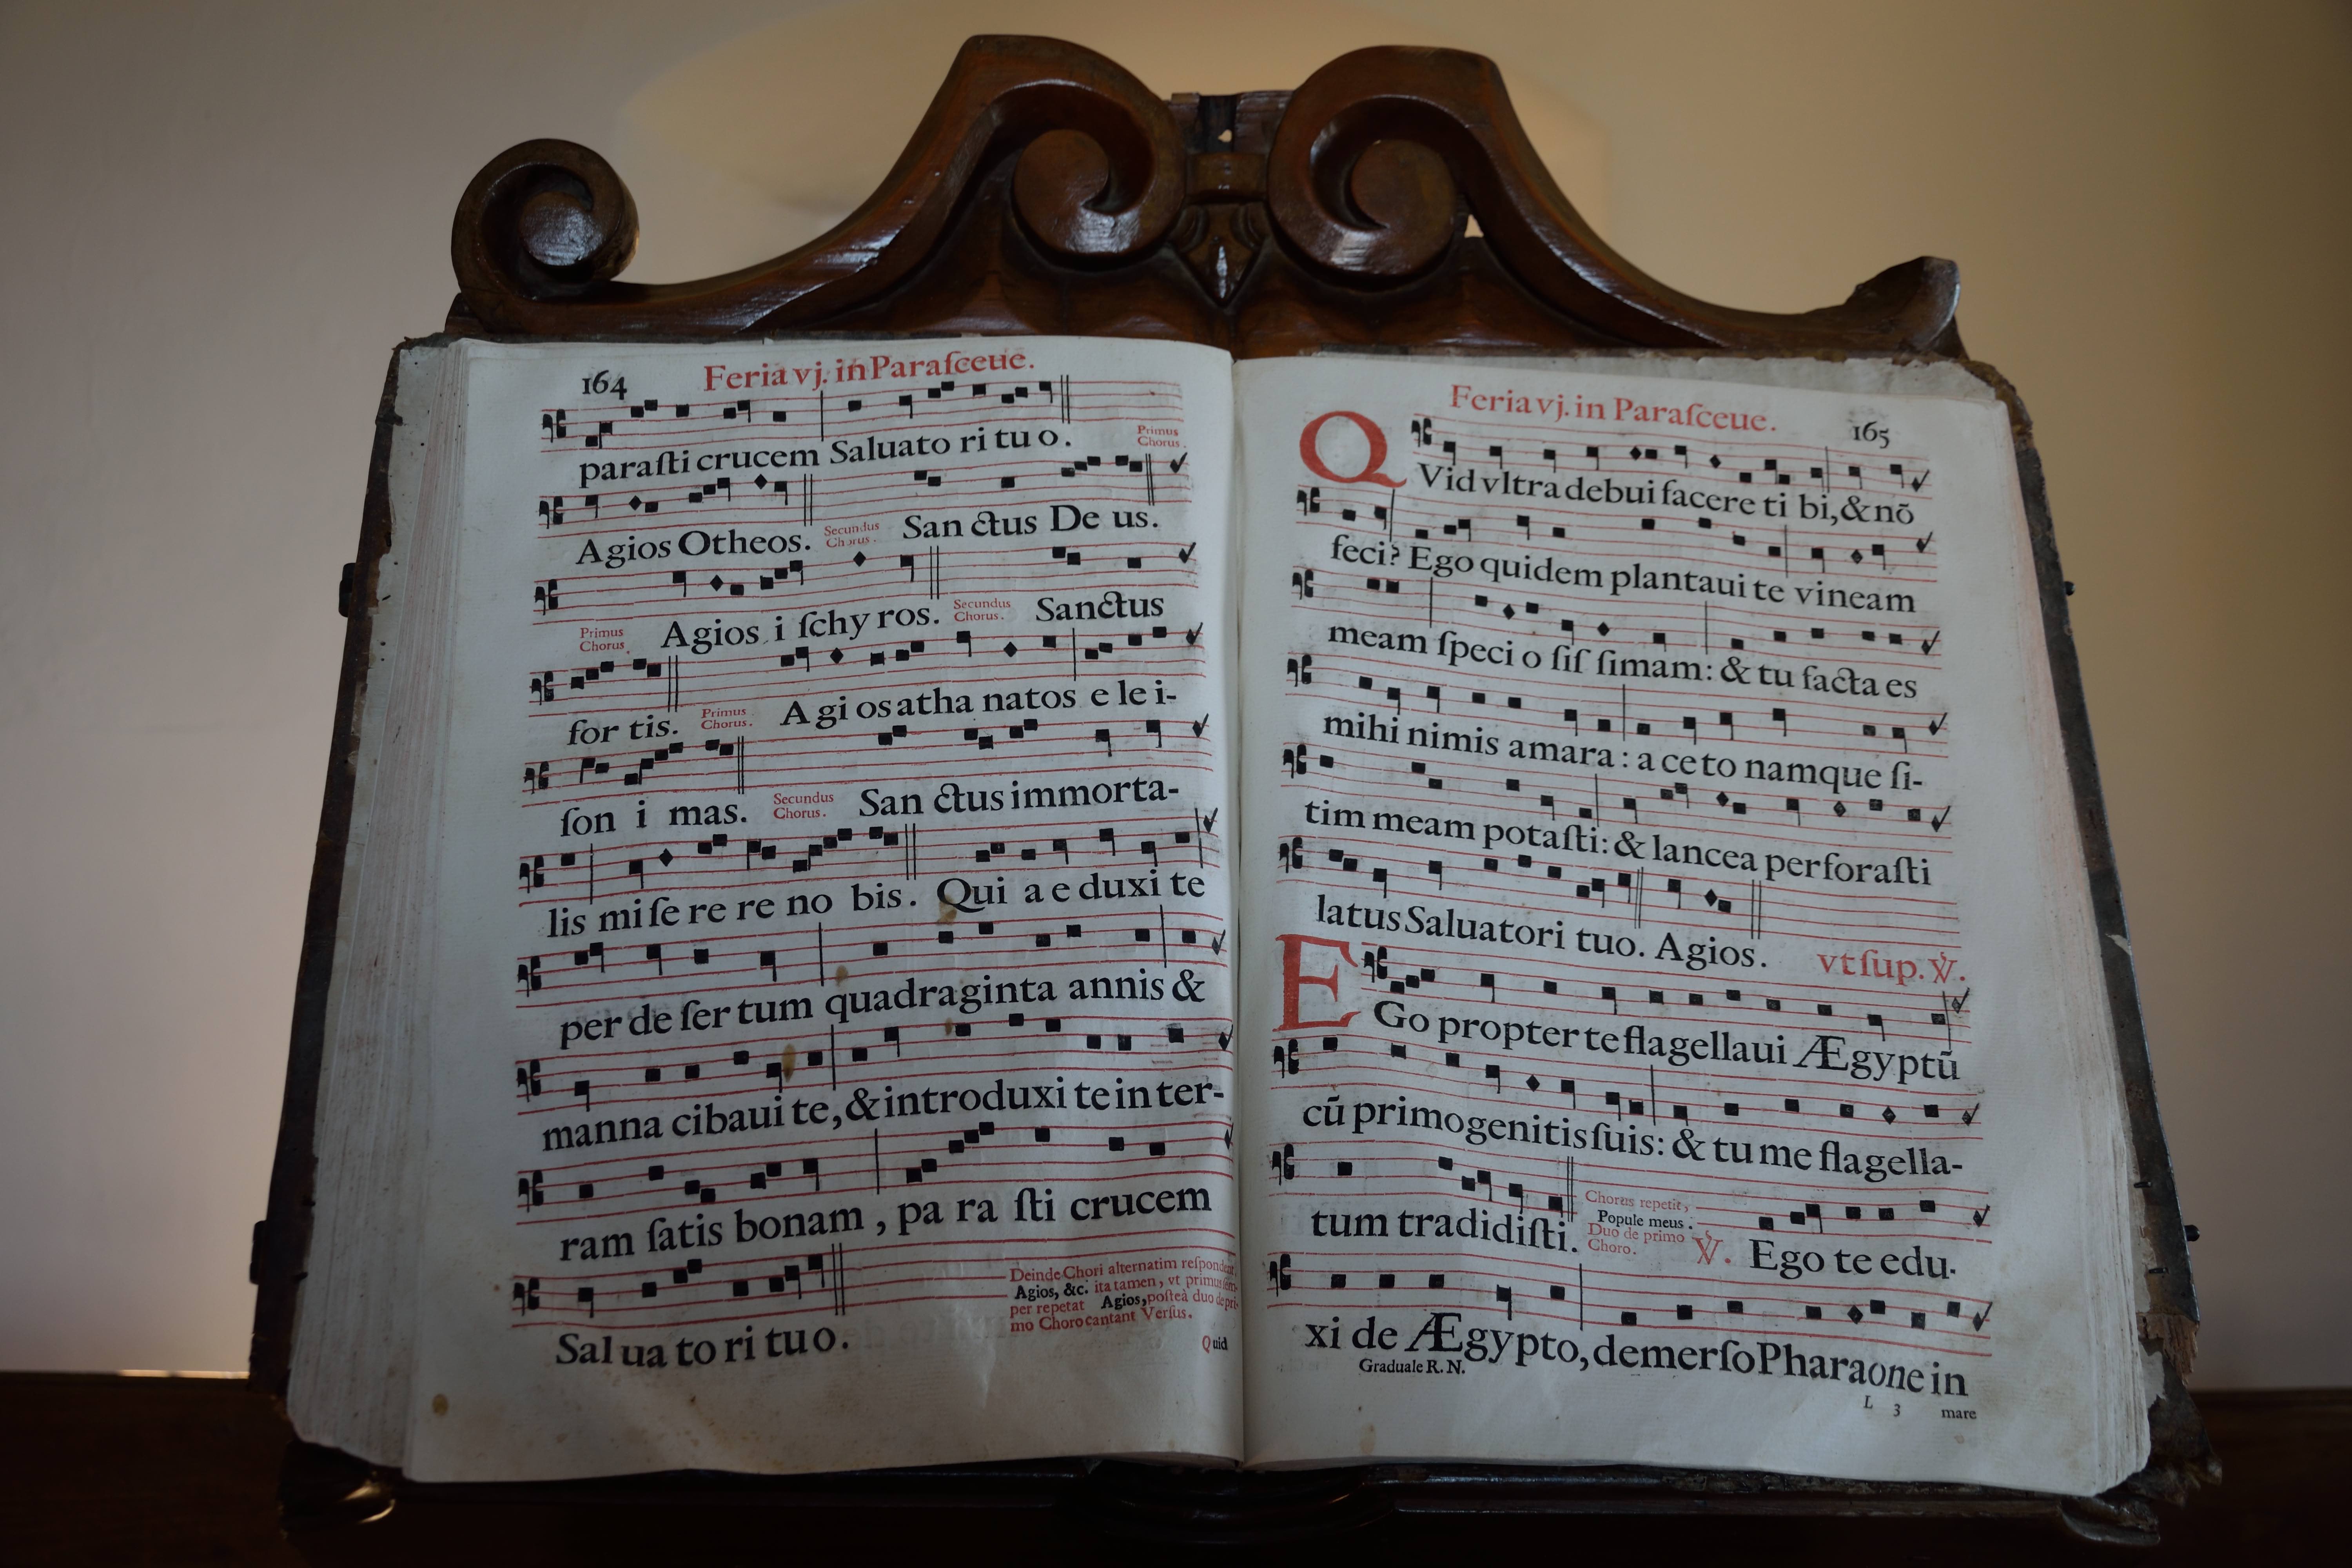 164 Feria vj. in Paraſceue.
paraſti crucem Saluato ri tu o. Primus Chorus.
Agios Otheos. Secundus Chorus. San ctus De us.
Primus Chorus. Agios i ſchy ros. Secundus Chorus. Sanctus
for tis. Primus Chorus. A gi os atha natos e le i-
ſon i mas. Secundus Chorus. San ctus immorta-
lis mi ſe re re no bis. Qui a e duxi te
per de ſer tum quadraginta annis &
manna cibaui te, & introduxi te in ter-
ram ſatis bonam, pa ra ſti crucem
Sal ua to ri tu o.
Deinde Chori alternatim reſpondeat,
Agios, &c. ita tamen, vt primus ſem-
per repetat Agios, poſteà duo de pri-
mo Choro cantant Verſus.
Quid
Feria vj. in Paraſceue. 165
QVid vltra debui facere ti bi, & nō
feci? Ego quidem plantaui te vineam
meam ſpeci o ſiſ ſimam: & tu facta es
mihi nimis amara: a ceto namque ſi-
tim meam potaſti: & lancea perforaſti
latus Saluatori tuo. Agios. vt ſup. ℣.
EGo propter te flagellaui Ægyptū
cū primogenitis ſuis: & tu me flagella-
tum tradidiſti. Chorus repetit, Popule meus. Duo de primo Choro. ℣. Ego te edu-
xi de Ægypto, demerſo Pharaone in
Graduale R. N.
L 3 mare